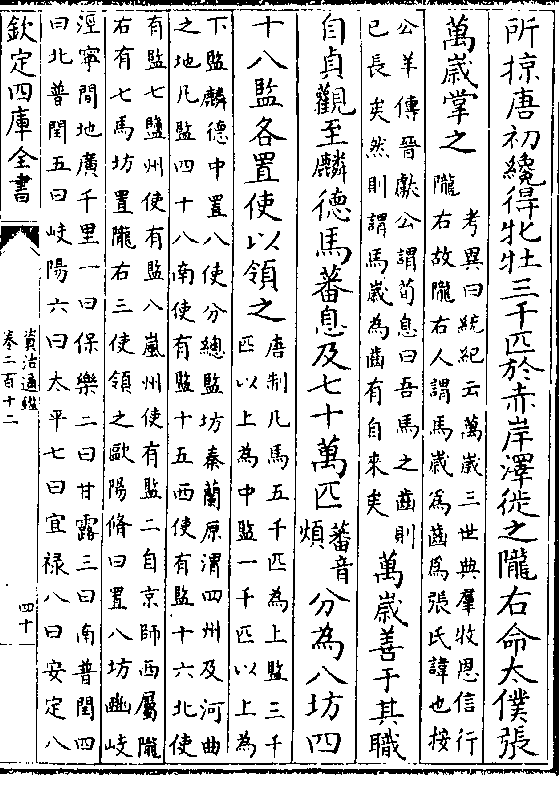 所掠唐初纔得牝牡三千匹於赤岸澤徙之隴右命太僕張
萬歲掌之
考異曰統紀云萬歲三世典羣牧恩信行
隴右故隴右人謂馬歲為齒為張氏諱也按
公羊傳晉獻公謂荀息曰吾馬之齒則
已長矣然則謂馬歲為齒有自來矣
萬歲善于其職
自貞觀至麟德馬蕃息及七十萬匹
蕃音
煩
分為八坊四
十八監各置使以領之
唐制凡馬五千匹為上監三千
匹以上為中監一千匹以上為
下監麟德中置八使分總監坊秦蘭原渭四州及河曲
之地凡監四十八南使有監十五西使有監十六北使
有監七鹽州使有監八嵐州使有監二自京師西屬隴
右有七馬坊置隴右三使領之歐陽脩曰置八坊豳岐
涇寧間地廣千里一曰保樂二曰甘露三曰南普閏四
曰北普閏五曰岐陽六曰太平七曰宜禄八曰安定八
欽定四庫全書
資治通鑑
卷二百十二
四十